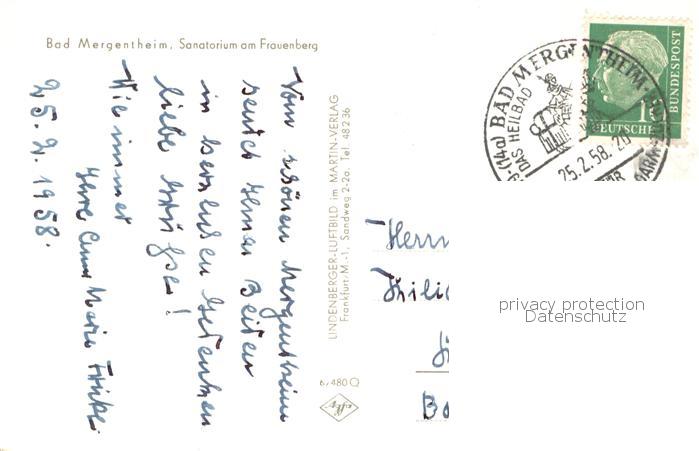 Bad Mergentheim, Sanatorium am Frauenberg
Vom schönen Mergentheim
sendet Ihnen Beiden
in herzlichen Gedenken
liebe Grüße!
Wie immer
Ihre Anna Maria
25.2.1958.
LINDENBERGER-LUFTBILD im MARTIN-VERLAG
Frankfurt/M.-1, Sandweg 2-2a, Tel. 48236
6/480Q
BAD MERGENTHEIM
(14a)
DAS HEILBAD
25.2.58. 20
10
DEUTSCHE
BUNDESPOST
Herrn
privacy protection
Datenschutz